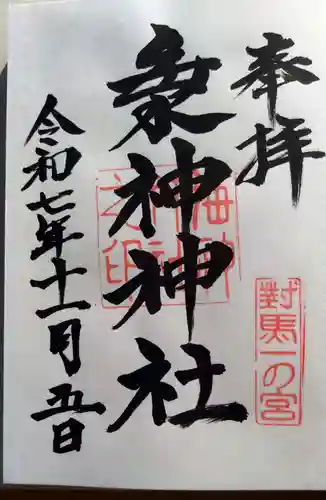 奉拝
對馬一の宮
海神神社
海神
神社
之印
令和七年十一月五日